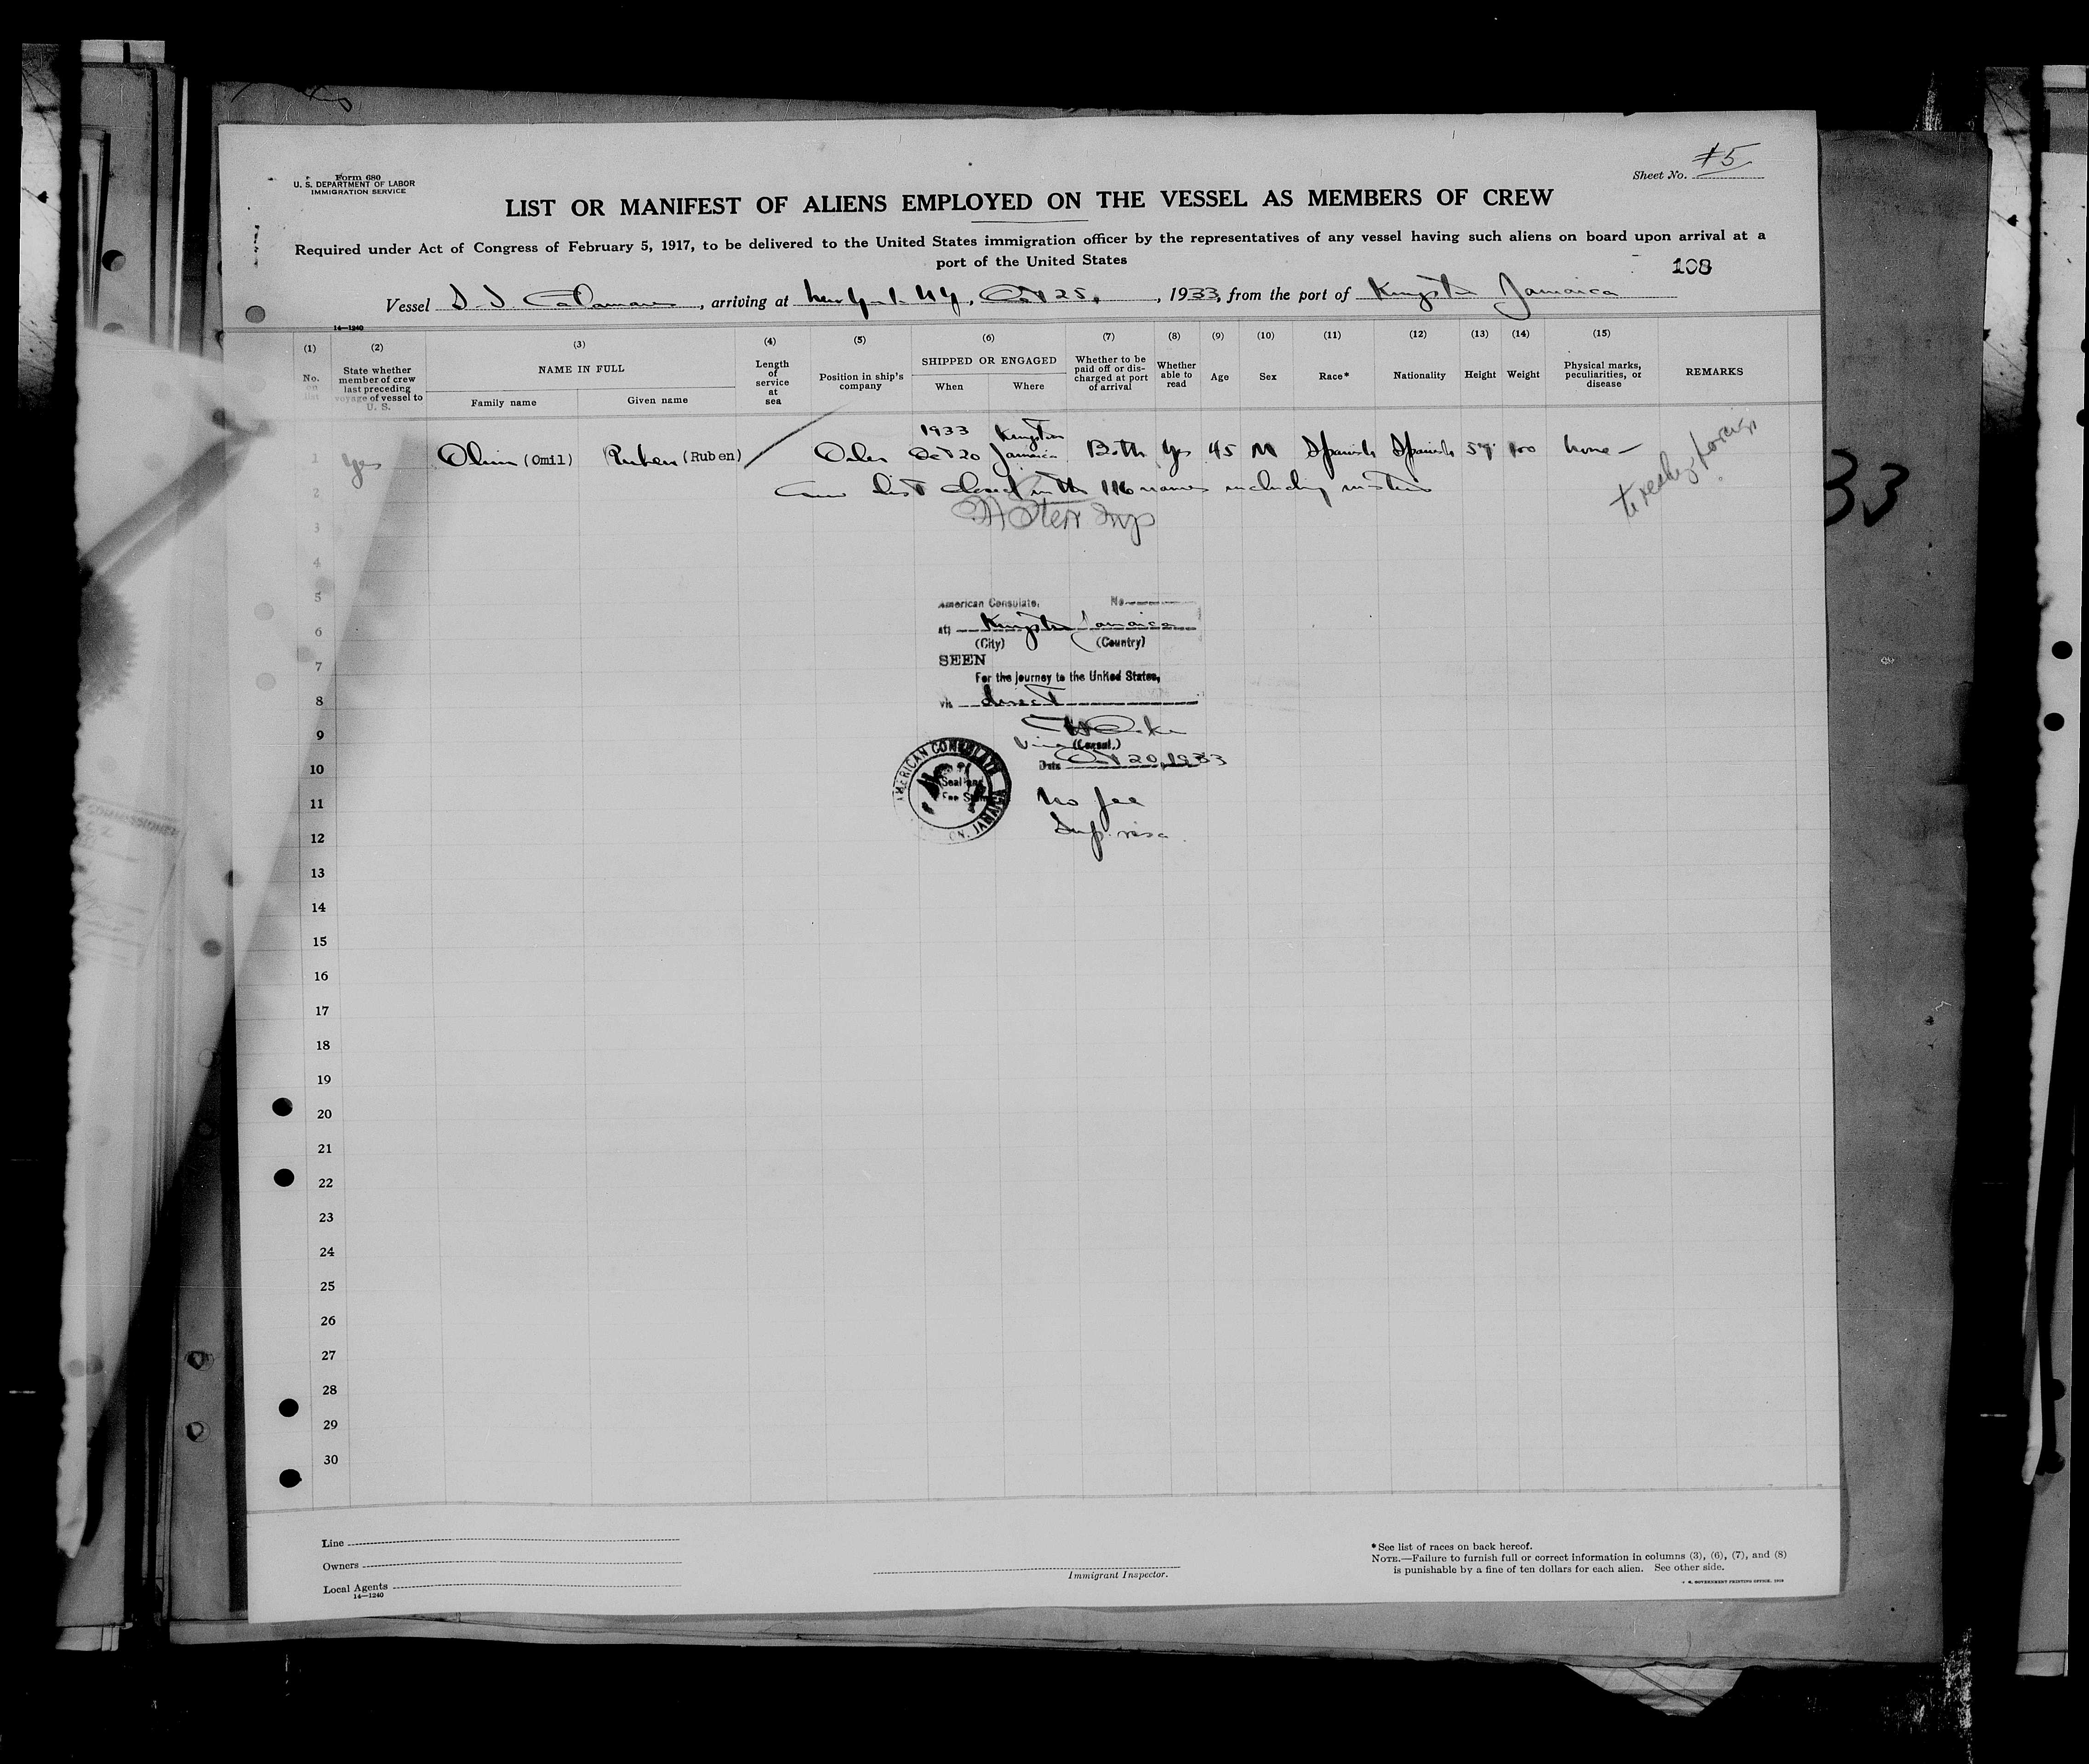 Form 680
U. S. DEPARTMENT OF LABOR
IMMIGRATION SERVICE
Sheet No. #5
LIST OR MANIFEST OF ALIENS EMPLOYED ON THE VESSEL AS MEMBERS OF CREW
Required under Act of Congress of February 5, 1917, to be delivered to the United States immigration officer by the representatives of any vessel having such aliens on board upon arrival at a
port of the United States
108
Vessel S. S. Calamares, arriving at New York N Y, Oct 25, 1933, from the port of Kingston Jamaica
14—1240
(1) (2) (3) (4) (5) (6) (7) (8) (9) (10) (11) (12) (13) (14) (15)
No. on list
State whether member of crew last preceding voyage of vessel to U. S.
NAME IN FULL
Family name Given name
Length of service at sea
Position in ship's company
SHIPPED OR ENGAGED
When Where
Whether to be paid off or discharged at port of arrival
Whether able to read
Age Sex Race* Nationality Height Weight
Physical marks, peculiarities, or disease
REMARKS
1 Yes (Omil) Ruben (Ruben) Oiler 1933 Oct 20 Kingston Jamaica Both Yes 45 M Spanish Spanish 5 None —
2 Crew list closed with 116 names including master
3
4
5
6
7
8
9
10
11
12
13
14
15
16
17
18
19
20
21
22
23
24
25
26
27
28
29
30
33
American Consulate, No
at Kingston Jamaica
(City) (Country)
SEEN
For the journey to the United States,
via direct
Vice (Consul.)
Date Oct 20, 1933
AMERICAN CONSULATE
JAMAICA
No fee
Sup. visa
Line
Owners
Local Agents
14—1240
Immigrant Inspector.
*See list of races on back hereof.
NOTE.—Failure to furnish full or correct information in columns (3), (6), (7), and (8)
is punishable by a fine of ten dollars for each alien. See other side.